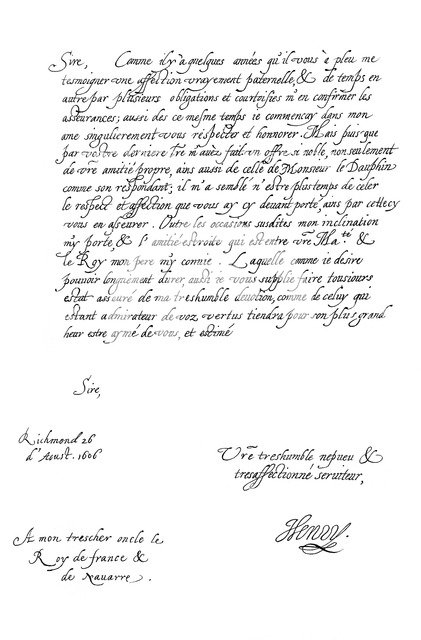 Sire, Comme il y'a quelques années qu'il vous à pleu me
tesmoigner vne affection vrayement paternelle, & de temps en
autre par plusieurs obligations et courtoisies m'en confirmer les
asseurances; aussi des ce mesme temps ie commencay dans mon
ame singulierement vous respecter et honnorer. Mais puis que
par vostre derniere l̃re m'avez fait un offre si noble, non seulement
de vr̃e amitié propre, ains aussi de celle de Monsieur le Dauphin
comme son respondant; il m'a semblé n'estre plus temps de celer
le respect et affection que vous ay cy devant porté, ains par cettecy
vous en asseurer. Outre les occasions susdites mon inclination
my porte, & l'amitié estroite qui est entre vr̃e Ma.té &
le Roy mon pere m'y convie. Laquelle comme ie desire
pouvoir longuement durer, aussi ie vous supplie faire tousiours
estat asseuré de ma treshumble devotion, comme de celuy qui
estant admirateur de voz vertus tiendra pour son plus grand
heur estre aymé de vous, et estimé
Sire,
Richmond 26
d'Aoust. 1606
Vr̃e treshumble nepueu &
tresaffectionné seruiteur,
Henry.
A mon trescher oncle le
Roy de france &
de Nauarre.